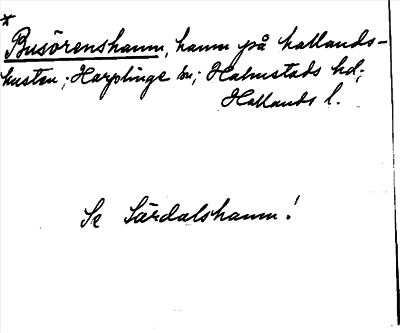 *
Busörenshamn, hamn på hallands-
kusten; Harplinge sn; Halmstads hd;
Hallands l.
Se Särdalshamn!